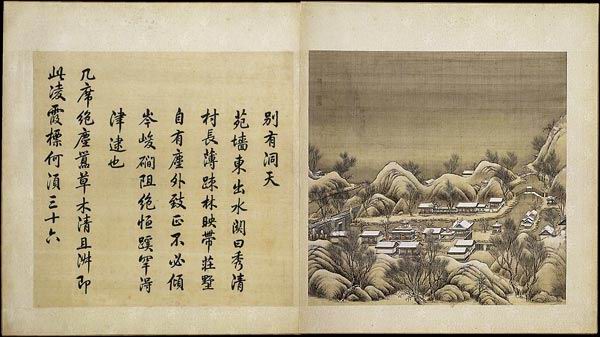 別有洞天
苑墻東出水関曰秀清
村長薄疎林映帶莊墅
自有塵外致正不必傾
岑峻磵阻絕恒蹊罕得
津逮也
几席絕塵嚻草木清且淑即
此凌霞標何須三十六